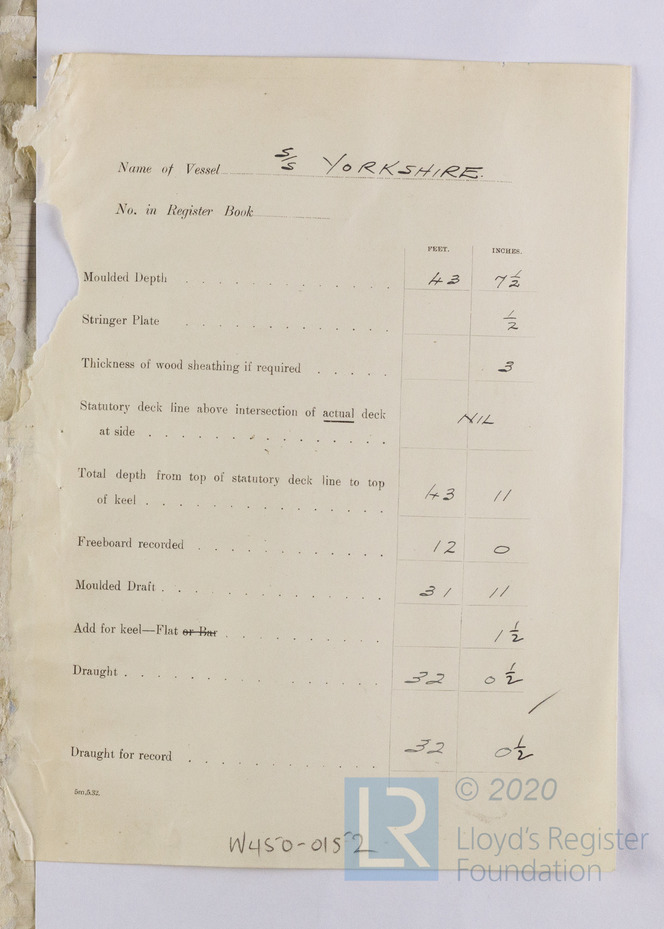 Name of Vessel S/S YORKSHIRE.
No. in Register Book
FEET. INCHES.
Moulded Depth 43 7½
Stringer Plate ½
Thickness of wood sheathing if required 3
Statutory deck line above intersection of actual deck
at side NIL
Total depth from top of statutory deck line to top
of keel 43 11
Freeboard recorded 12 0
Moulded Draft 31 11
Add for keel—Flat or Bar 1½
Draught 32 0½
Draught for record 32 0½
5m,5.32.
W450-0152
LR
© 2020
Lloyd's Register
Foundation